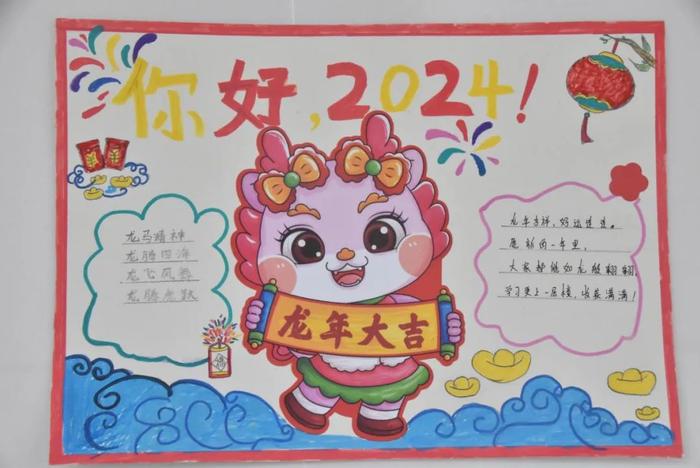 你好,2024!
龙马精神
龙腾四海
龙飞凤舞
龙腾虎跃
龙年吉祥,好运连连。
愿新的一年里,
大家都能如龙般翱翔,
学习更上一层楼,收获满满!
龙年大吉